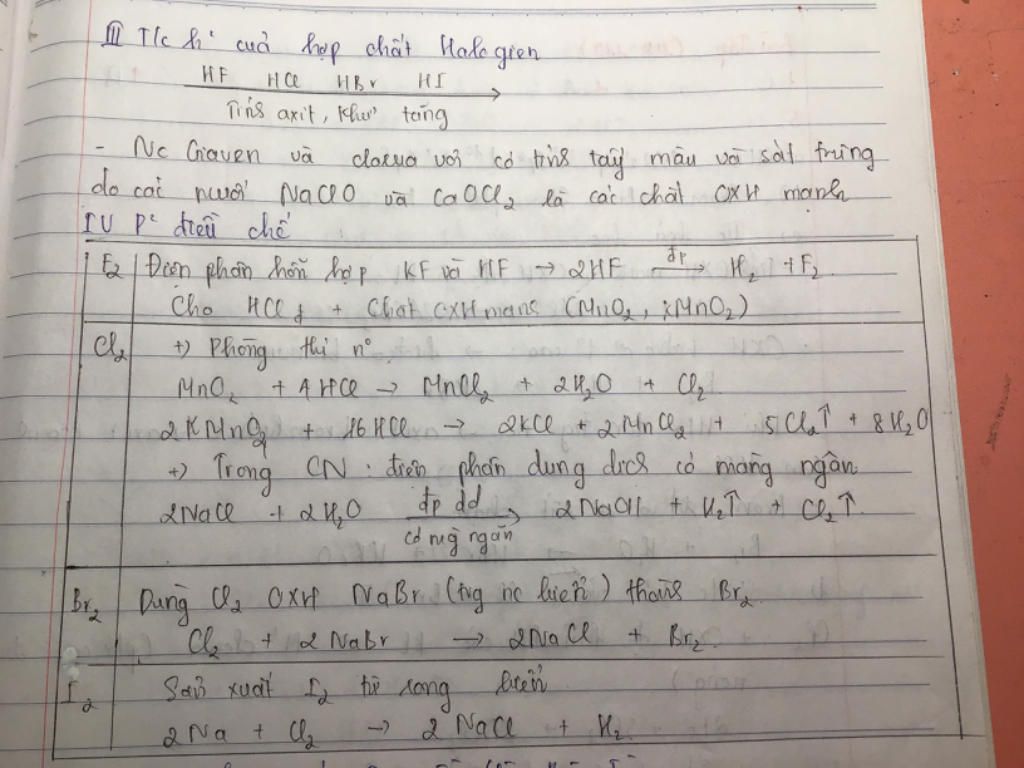 III T/c h² của hợp chất Halogien
HF HCl HBr HI
Tính axit, khử tăng
- Nc Giaven và clorua vôi có tính tẩy màu và sát trùng
do các muối NaClO và CaOCl₂ là các chất OXH mạnh
IV P² điều chế
F₂ Điện phân hỗn hợp KF và HF → 2HF đp→ H₂ + F₂
Cho HClđ + Chất OXH mạnh (MnO₂, KMnO₂)
Cl₂ +) Phòng thí n⁰
MnO₂ + 4HCl → MnCl₂ + 2H₂O + Cl₂
2KMnO₄ + 16HCl → 2KCl + 2MnCl₂ + 5Cl₂↑ + 8H₂O
+) Trong CN: điện phân dung dịch có màng ngăn
2NaCl + 2H₂O đp dd→ 2NaOH + H₂↑ + Cl₂↑
có mg ngăn
Br₂ Dùng Cl₂ OXH NaBr (tng nc biển) thành Br₂
Cl₂ + 2NaBr → 2NaCl + Br₂
I₂ Sản xuất I₂ từ rong biển
2Na + Cl₂ → 2NaCl + I₂